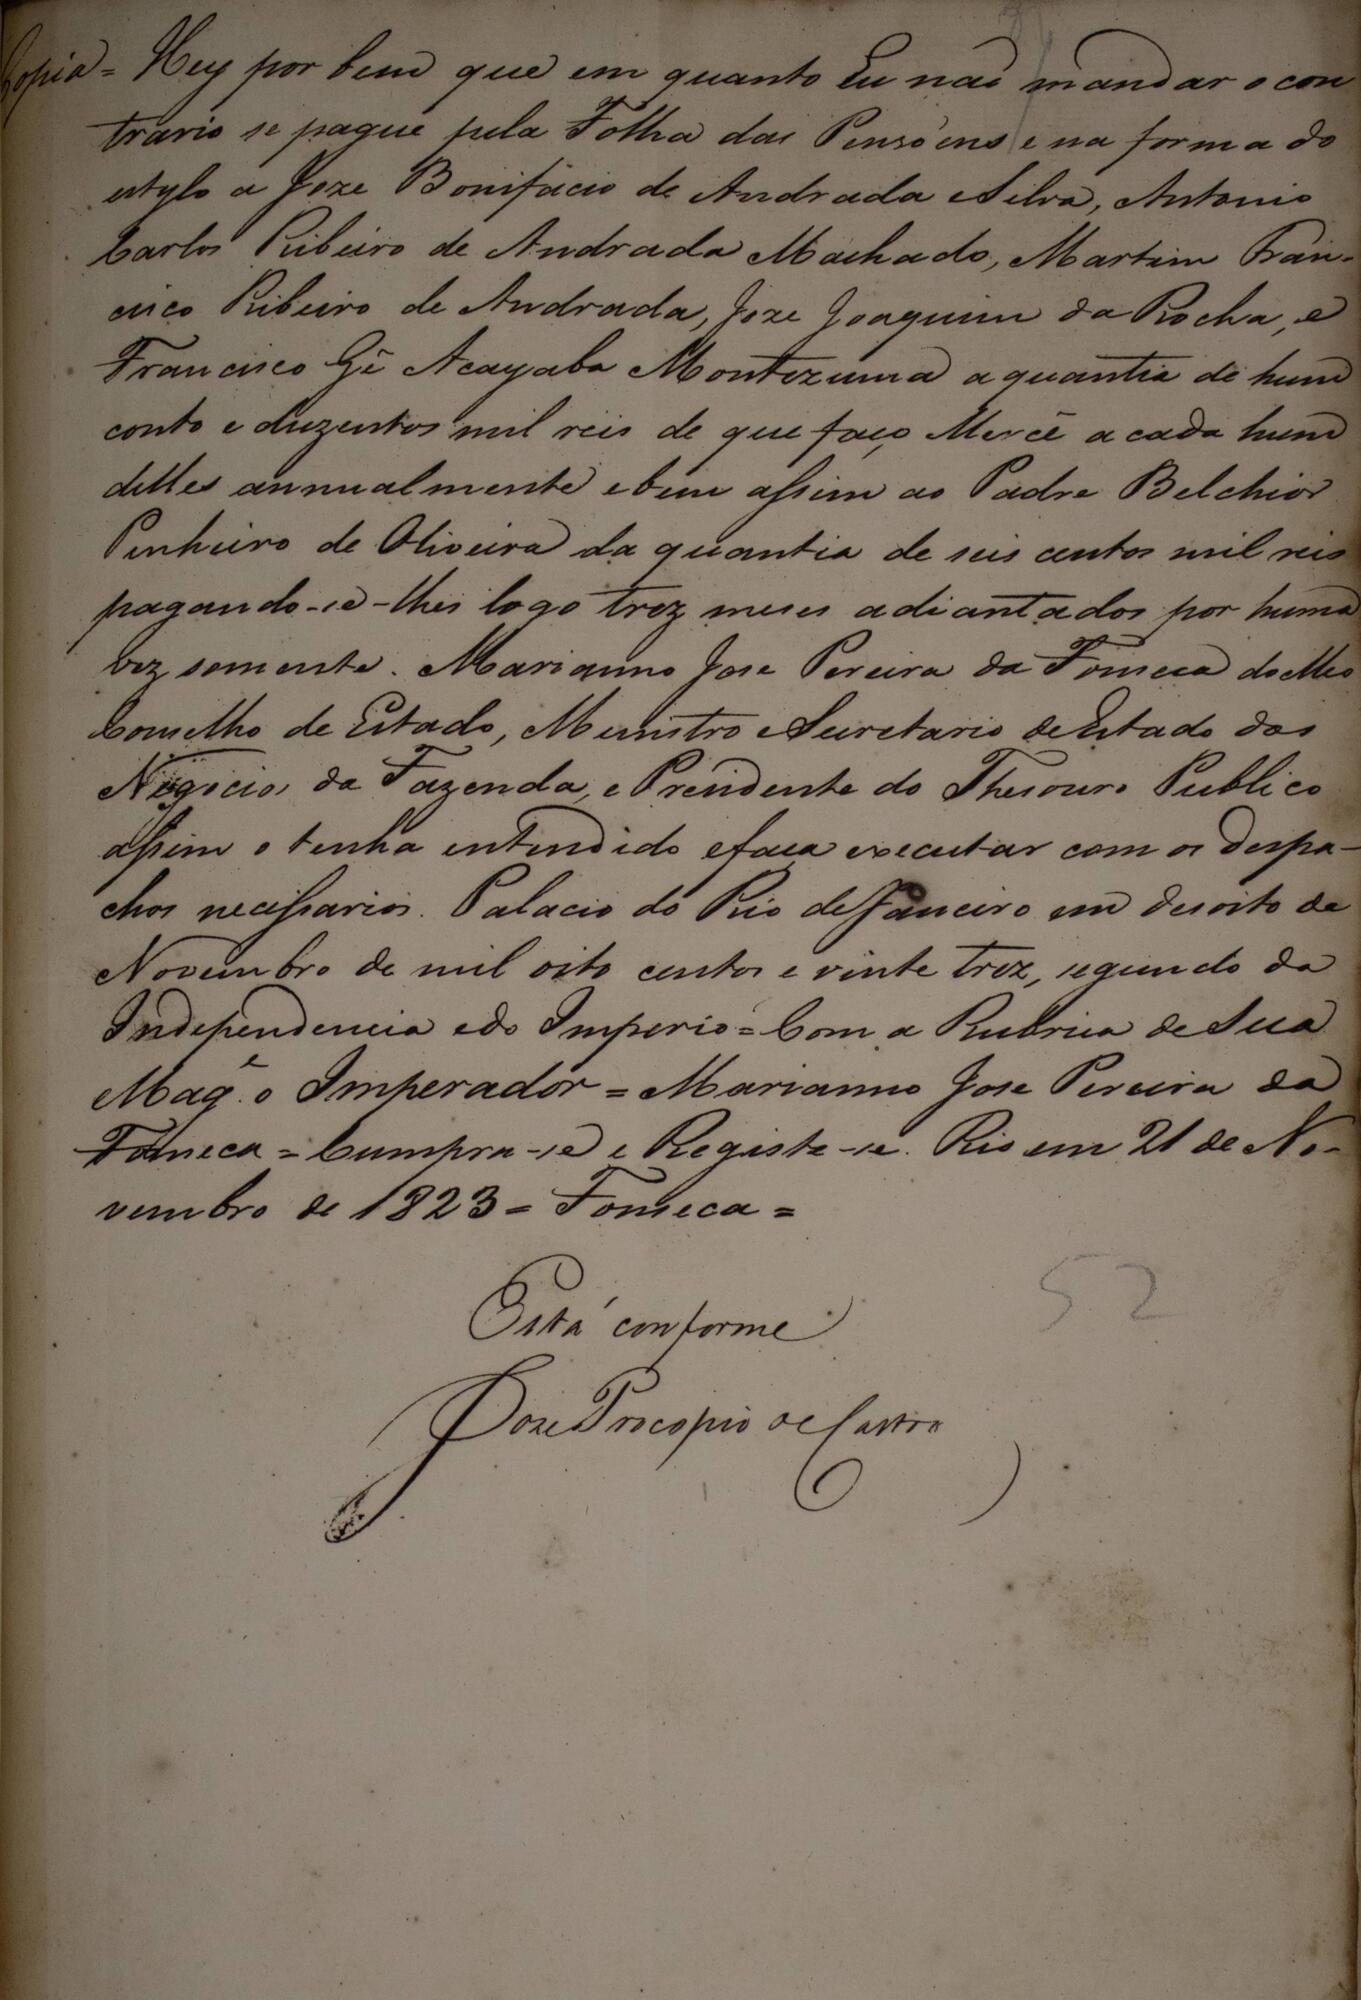 Copia = Hey por bem que em quanto Eu não mandar o con
trario se pague pela Folha das Pensoens e na forma do
estylo a Joze Bonifacio de Andrada e Silva, Antonio
Carlos Ribeiro de Andrada Machado, Martim Fran-
cisco Ribeiro de Andrada, Joze Joaquim da Rocha, e
Francisco Gê Acayaba Montezuma a quantia de hum
conto e duzentos mil reis de que faço Mercê a cada hum
delles annualmente e bem assim ao Padre Belchior
Pinheiro de Oliveira da quantia de seis centos mil reis
pagando-se-lhes logo trez meses adiantados por huma
vez somente. Marianno Jose Pereira da Fonseca do Meo
Conselho de Estado, Ministro e Secretario de Estado dos
Negocios da Fazenda, e Presidente do Thesouro Publico
assim o tenha entendido e faça executar com os despa-
chos necessarios. Palacio do Rio de Janeiro em desoito de
Novembro de mil oito centos e vinte trez, segundo da
Independencia e do Imperio = Com a Rubrica de Sua
Magᵉ. o Imperador = Marianno Jose Pereira da
Fonseca = Cumpra-se e Registe-se. Rio em 21 de No-
vembro de 1823 = Fonseca =
52
Está conforme
Joze Procopio de Castro